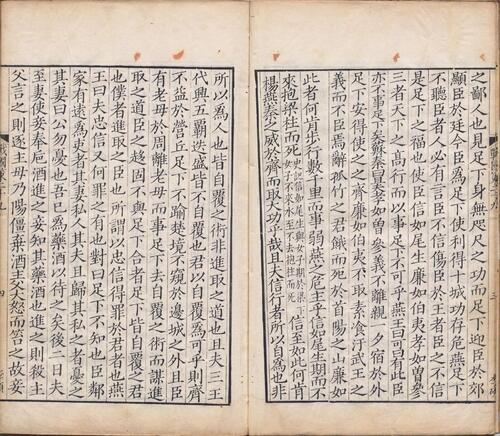 之鄙人也見足下身無咫尺之功而足下迎臣於郊
顯臣於廷今臣爲足下使利得十城功存危燕足下
不聽臣者人必有言臣不信傷臣於王者臣之不信
是足下之福也使臣信如尾生廉如伯夷孝如曾參
三者天下之高行而以事足下不可乎燕王曰可曰有此臣
亦不事足下矣蘇秦曰且夫孝如曾參義不離親一夕宿於外
足下安得使之之齊廉如伯夷不取素飡汙武王之
義而不臣焉辭孤竹之君餓而死於首陽之山廉如
此者何肯步行數千里而事弱燕之危主乎信如尾生期而不
來抱梁柱而死史記信如尾生與女子期於梁下女子不來水至不去抱柱而死信至如此何肯
楊燕秦之威於齊而取大功乎哉且夫信行者所以自爲也非
所以爲人也皆自覆之術非進取之道也且夫三王
代興五霸迭盛皆不自覆也君以自覆爲可乎則齊
不益於營丘足下不踰楚境不窺於邊城之外且臣
有老母於周離老母而事足下去自覆之術而謀進
取之道臣之趍固不與足下合者足下皆自覆之君
也僕者進取之臣也所謂以忠信得罪於君者也燕
王曰夫忠信又何罪之有也對曰足下不知也臣鄰
家有遠爲吏者其妻私人其夫且歸其私之者憂之
其妻曰公勿憂也吾已爲藥酒以待之矣後二日夫
至妻使妾奉卮酒進之妾知其藥酒也進之則殺主
父言之則逐主母乃陽僵棄酒主父大怒而笞之故妾